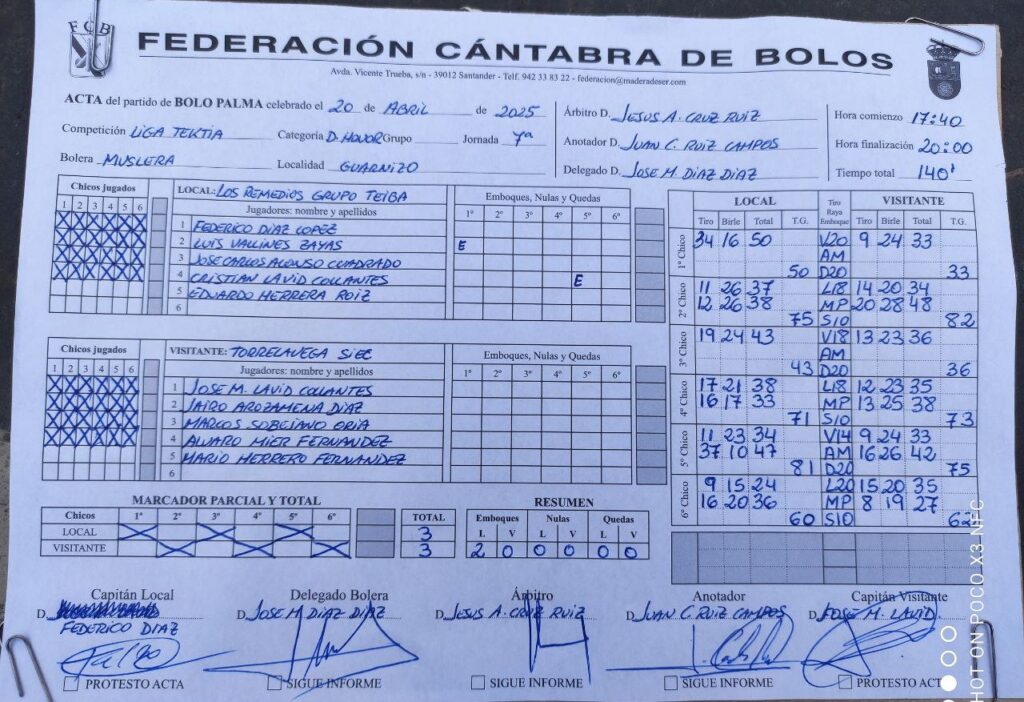 FCB
FEDERACIÓN CÁNTABRA DE BOLOS
Avda. Vicente Trueba, s/n - 39012 Santander - Telf. 942 33 83 22 - federacion@maderadeser.com
ACTA del partido de BOLO PALMA celebrado el 20 de ABRIL de 2025
Competición LIGA TEKTIA Categoría D. HONOR Grupo Jornada 7ª
Bolera MUSLERA Localidad GUARNIZO
Árbitro D. JESUS A. CRUZ RUIZ
Anotador D. JUAN C. RUIZ CAMPOS
Delegado D. JOSE M. DIAZ DIAZ
Hora comienzo 17:40
Hora finalización 20:00
Tiempo total 140'
Chicos jugados
1 2 3 4 5 6
LOCAL: LOS REMEDIOS GRUPO TEIBA
Jugadores: nombre y apellidos
1 FEDERICO DIAZ LOPEZ
2 LUIS VALLINES ZAYAS
3 JOSE CARLOS ALONSO CUADRADO
4 CRISTIAN LAVID COLLANTES
5 EDUARDO HERRERA ROIZ
6
Emboques, Nulas y Quedas
1º 2º 3º 4º 5º 6º
E
E
Chicos jugados
1 2 3 4 5 6
VISITANTE: TORRELAVEGA SIEC
Jugadores: nombre y apellidos
1 JOSE M. LAVID COLLANTES
2 JAIRO AROZAMENA DIAZ
3 MARCOS SOBEJANO ORIA
4 ALVARO MIER FERNANDEZ
5 MARIO HERRERO FERNANDEZ
6
Emboques, Nulas y Quedas
1º 2º 3º 4º 5º 6º
LOCAL Tiro Raya Emboque VISITANTE
Tiro Birle Total T.G. Tiro Birle Total T.G.
1º Chico
34 16 50 V20 9 24 33
AM
50 D20 33
2º Chico
11 26 37 L18 14 20 34
12 26 38 MP 20 28 48
75 S10 82
3º Chico
19 24 43 V18 13 23 36
AM
43 D20 36
4º Chico
17 21 38 L18 12 23 35
16 17 33 MP 13 25 38
71 S10 73
5º Chico
11 23 34 V14 9 24 33
37 10 47 AM 16 26 42
81 D20 75
6º Chico
9 15 24 L20 15 20 35
16 20 36 MP 8 19 27
60 S10 62
MARCADOR PARCIAL Y TOTAL
Chicos 1º 2º 3º 4º 5º 6º TOTAL
LOCAL 3
VISITANTE 3
RESUMEN
Emboques Nulas Quedas
L V L V L V
2 0 0 0 0 0
Capitán Local Delegado Bolera Árbitro Anotador Capitán Visitante
D. D. JOSE M DIAZ DIAZ D. JESUS A. CRUZ RUIZ D. JUAN C. RUIZ CAMPOS D. JOSE M. LAVID
FEDERICO DIAZ
PROTESTO ACTA SIGUE INFORME SIGUE INFORME SIGUE INFORME PROTESTO ACT
SHOT ON POCO X3 NFC